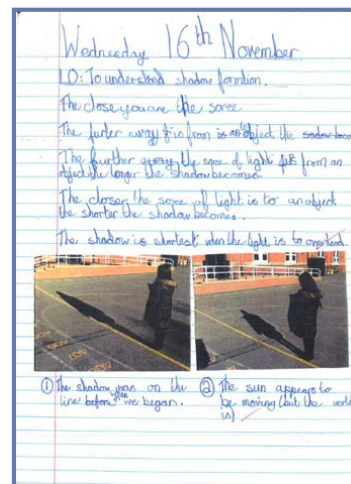 Wednesday 16th November
LO: To understand shadow formtion.
The close you are the sorse
The furter away is from is an object the
The further away the sorse of light is from an
object the longer the shadow becomes.
The closer the sorse of light is to an object
the shorter the shadow becomes.
The shadow is shortest when the light is overhead.
① The shadow was on the
line when we began.
② The sun appears to
be moving (but the world
is)